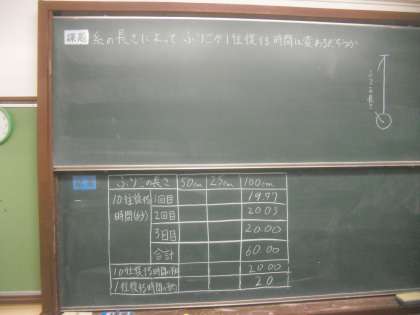 課題 糸の長さによって ふりこが1往復する時間は変わるだろうか
ふりこの長さ
ふりこの長さ 50cm 25cm 100cm
10往復する時間(秒) 1回目 19.97
2回目 20.03
3回目 20.00
合計 60.00
10往復する時間 20.00
1往復する時間 2.0